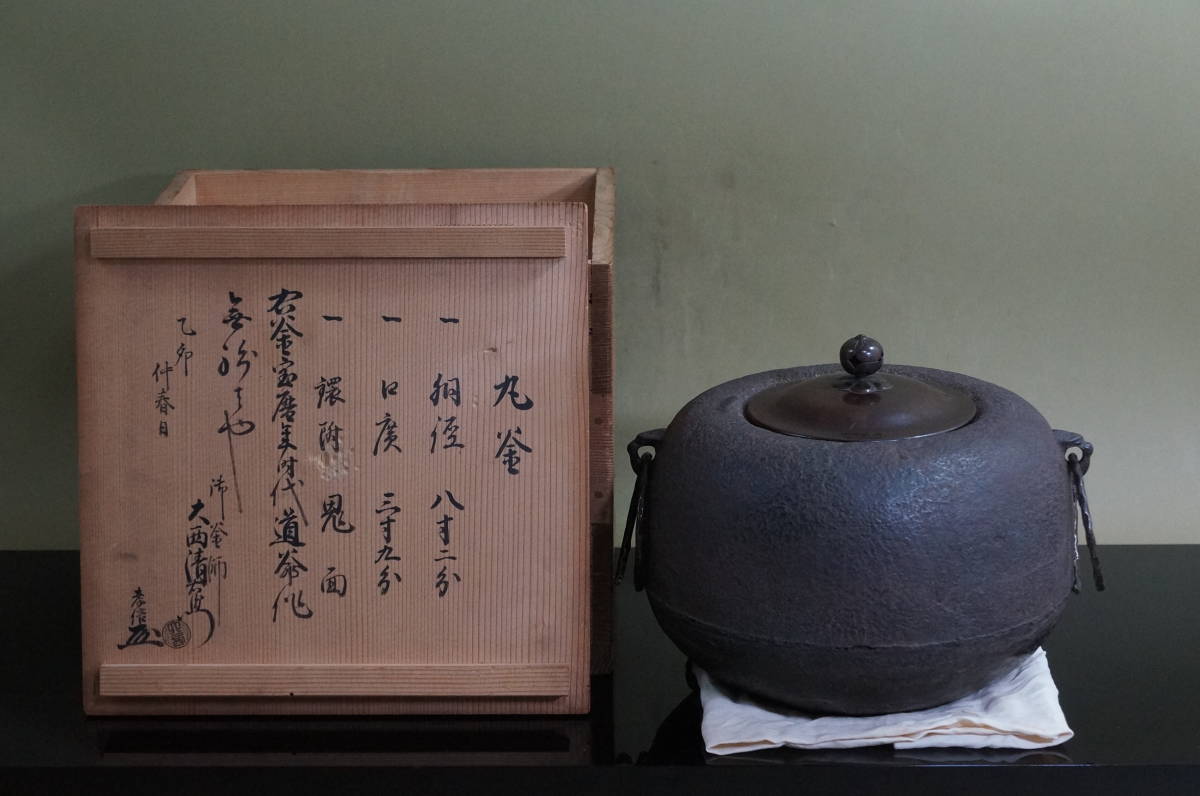 丸釜
一 胴径 八寸二分
一 口廣 三寸九分
一 鐶附 鬼面
右釜宝暦年時代道爺作
無紛者也
乙卯
仲春日
御釜師
大西清右衛門